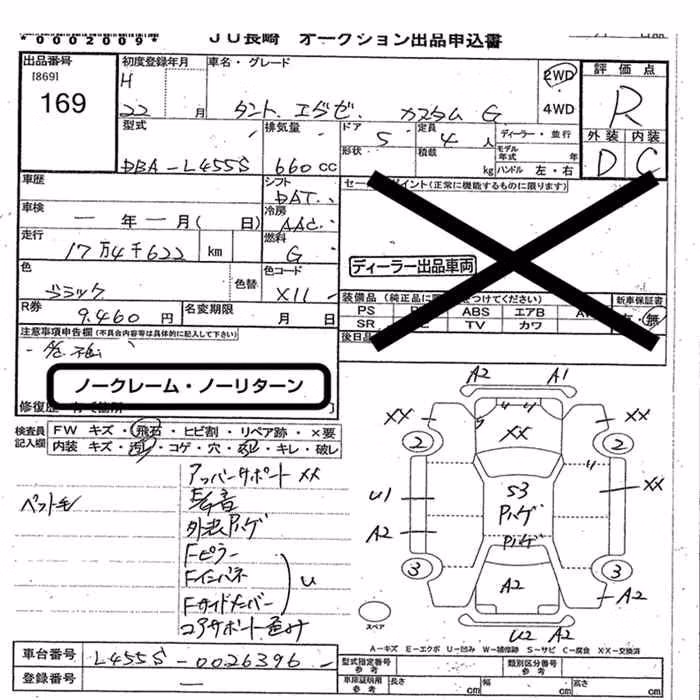 *0002009*
JU長崎 オークション出品申込書
出品番号
[869]
169
初度登録年月
H
22 月
車名・グレード
タント エグゼ カスタム G
2WD
4WD
評価点
R
外装 内装
D C
型式
DBA-L455S
排気量
660 cc
ドア
5
形状
定員
4人
積載
kg
ディーラー・並行
モデル年式 年
ハンドル 左・右
車歴
車検
— 年 — 月( 日)
走行
17万4千622 km
シフト
DAT
冷房
AAC
燃料
G
色
ブラック
色替
色コード
X11
R券
9.460円
名変期限
月 日
セールスポイント(正常に機能するものに限ります)
ディーラー出品車両
装備品(純正品に つけてください)
新車保証書
PS ABS エアB
SR TV カワ
・無
後日品
注意事項申告欄(不具合内容等は具体的に記入して下さい)
ノークレーム・ノーリターン
修復歴
検査員記入欄
FW キズ・飛石・ヒビ割・リペア跡・×要
内装 キズ・汚レ・コゲ・穴・ ・キレ・破レ
ペット毛
アッパーサポート XX
E/G音
外装Pハゲ
Fピラー
Fインパネ
Fサイドメンバー
U
コアサポート歪み
A2 A1
XX XX XX
2 2
U1 S3 XX
Pハゲ
A2 Pハゲ
3 3
A2 A2
U2 A2
スペア
A－キズ E－エクボ U－凹み W－補修跡 S－サビ C－腐食 XX－交換済
車台番号
L455S-0026396
登録番号
—
型式指定番号 参考
類別区分番号 参考
車庫証明用 参考
長さ cm 幅 cm 高さ cm